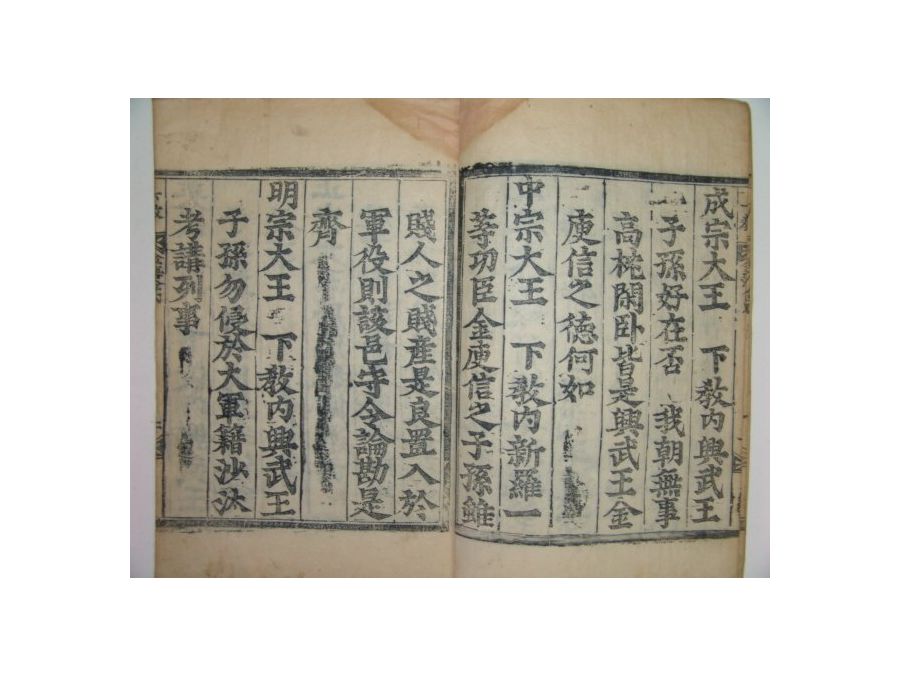 成宗大王 下敎內興武王
子孫好在否 我朝無事
高枕閑卧皆是興武王金
庾信之德何如
中宗大王 下敎內新羅一
等功臣金庾信之子孫雖
賤人之賤産是良置入於
軍役則該邑守令論勘是
齊
明宗大王 下敎內興武王
子孫勿侵於大軍籍沙汰
考講列事